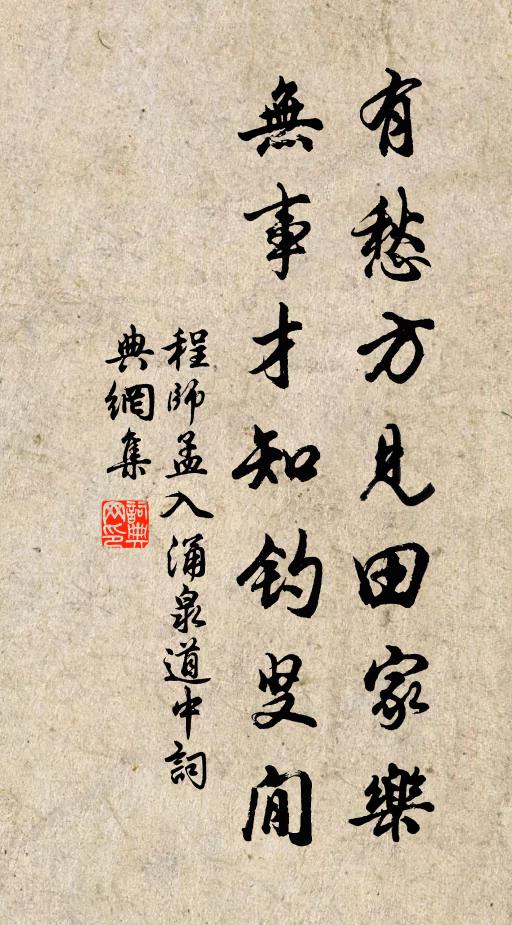 有愁方見田家樂
無事才知釣叟閒
程師孟入涌泉道中詞
典網集
詞典
网印